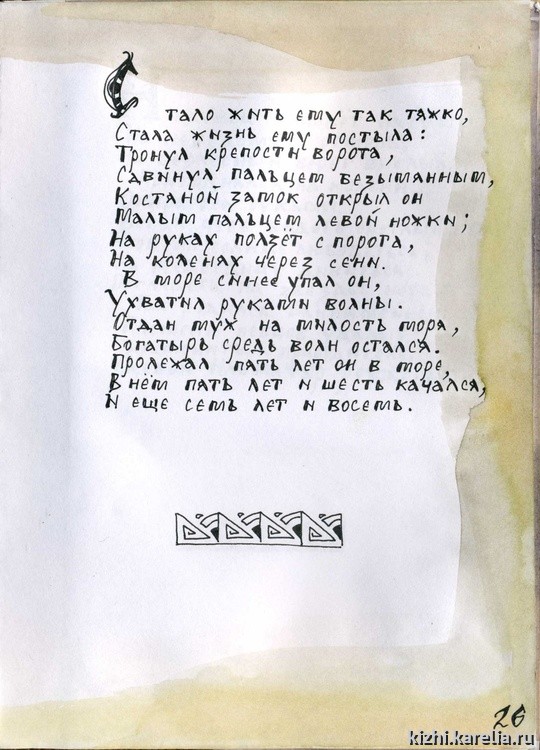 Стало жить ему так тяжко,
Стала жизнь ему постыла:
Тронул крепости ворота,
Сдвинул пальцем безымянным,
Костяной замок открыл он
Малым пальцем левой ножки;
На руках ползёт с порога,
На коленях через сени.
В море синее упал он,
Ухватил руками волны.
Отдан муж на милость моря,
Богатырь средь волн остался.
Пролежал пять лет он в море,
В нём пять лет и шесть качался,
И еще семь лет и восемь.
26
kizhi.karelia.ru